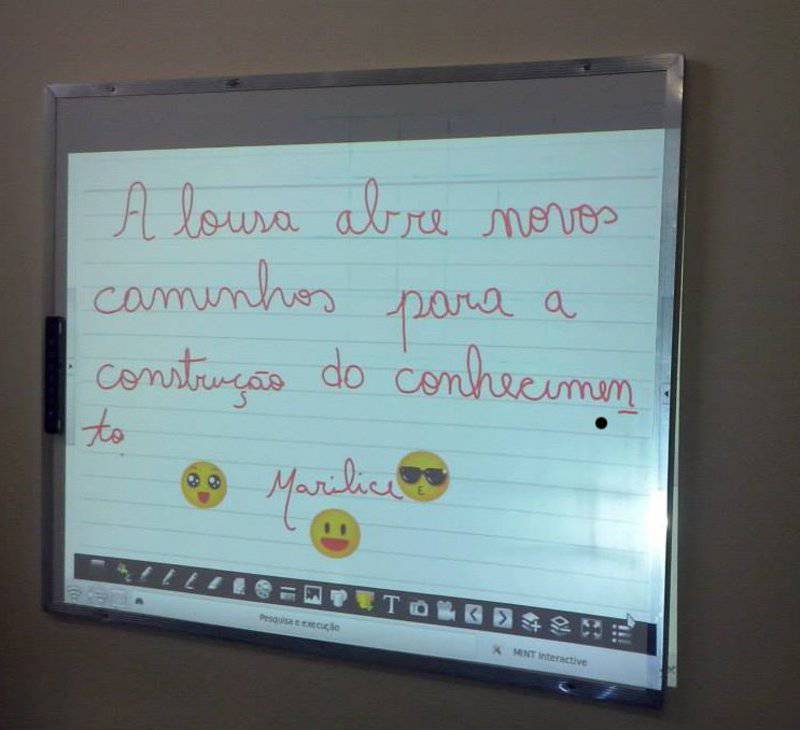 A lousa abre novos
caminhos para a
construção do conhecimen
to
Marilice
T
Pesquisa e execução
MINT Interactive